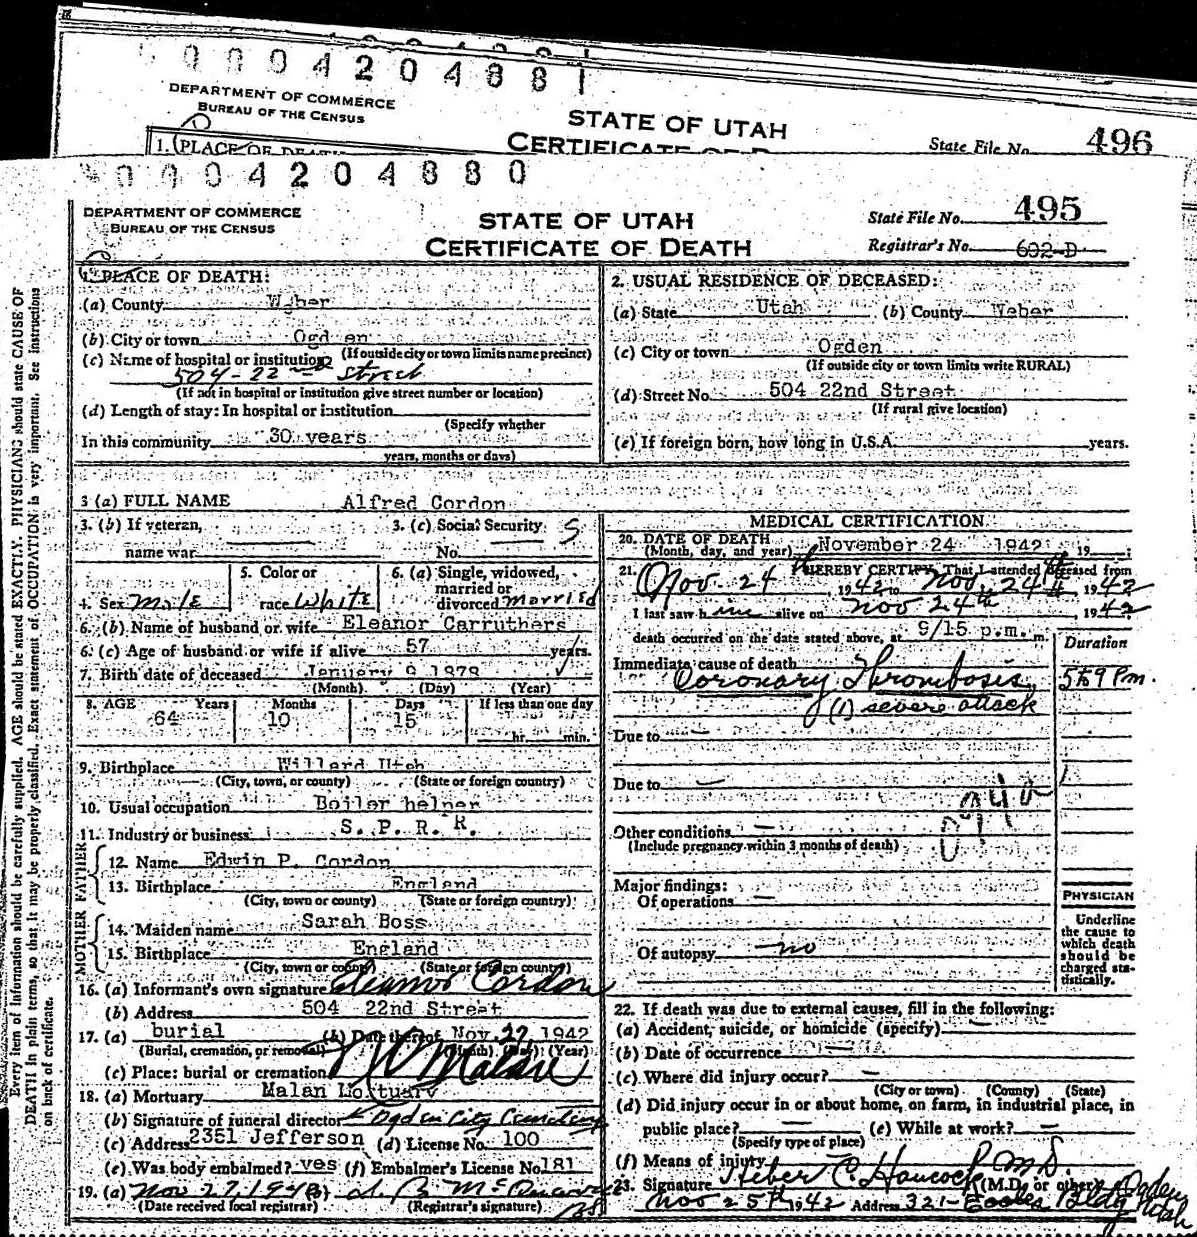 0004204881
DEPARTMENT OF COMMERCE
BUREAU OF THE CENSUS
STATE OF UTAH
State File No. 496
1. PLACE OF DEATH
0004204880
DEPARTMENT OF COMMERCE
BUREAU OF THE CENSUS
STATE OF UTAH
CERTIFICATE OF DEATH
State File No. 495
Registrar's No. 602-D
1. PLACE OF DEATH:
(a) County Weber
(b) City or town Ogden
(If outside city or town limits name precinct)
(c) Name of hospital or institution
504-22nd Street
(If not in hospital or institution give street number or location)
(d) Length of stay: In hospital or institution
(Specify whether
In this community 30 years
years, months or days)
2. USUAL RESIDENCE OF DECEASED:
(a) State Utah (b) County Weber
(c) City or town Ogden
(If outside city or town limits write RURAL)
(d) Street No. 504 22nd Street
(If rural give location)
(e) If foreign born, how long in U.S.A. years.
3 (a) FULL NAME Alfred Cordon
3. (b) If veteran, 3. (c) Social Security S
name war No.
5. Color or 6. (a) Single, widowed,
married or
4. Sex Male race White divorced married
6. (b) Name of husband or wife Eleanor Carruthers
6. (c) Age of husband or wife if alive 57 years.
7. Birth date of deceased January 9 1878
(Month) (Day) (Year)
8. AGE Years Months Days If less than one day
64 10 15 hr. min.
9. Birthplace Willard Utah
(City, town, or county) (State or foreign country)
10. Usual occupation Boiler helper
11. Industry or business S. P. R. R.
FATHER
12. Name Edwin P. Cordon
13. Birthplace England
(City, town or county) (State or foreign country)
MOTHER
14. Maiden name Sarah Boss
15. Birthplace England
(City, town or county) (State or foreign country)
16. (a) Informant's own signature Eleanor Cordon
(b) Address 504 22nd Street
17. (a) burial (b) Date thereof Nov. 27, 1942
(Burial, cremation, or removal) (Month) (Day) (Year)
(c) Place: burial or cremation
18. (a) Mortuary Malan Mortuary
(b) Signature of funeral director Ogden City Cemetery
(c) Address 2351 Jefferson (d) License No. 100
(e) Was body embalmed? yes (f) Embalmer's License No. 181
19. (a) Nov 27, 1942 (b)
(Date received local registrar) (Registrar's signature)
MEDICAL CERTIFICATION
20. DATE OF DEATH
(Month, day, and year) November 24 1942 19
21. I HEREBY CERTIFY That I attended deceased from
Nov. 24th 1942 to Nov. 24th 1942
I last saw him alive on Nov 24th 1942
death occurred on the date stated above, at 9/15 p.m. m.
Duration
Immediate cause of death
Coronary Thrombosis
(1) severe attack
Due to
Due to
Other conditions
(Include pregnancy within 3 months of death)
Major findings:
Of operations
Of autopsy no
PHYSICIAN
Underline
the cause to
which death
should be
charged sta-
tistically.
22. If death was due to external causes, fill in the following:
(a) Accident, suicide, or homicide (specify)
(b) Date of occurrence
(c) Where did injury occur?
(City or town) (County) (State)
(d) Did injury occur in or about home, on farm, in industrial place, in
public place? (e) While at work?
(Specify type of place)
(f) Means of injury
23. Signature Heber C. Hancock M.D. (M.D. or other)
Nov 25th 1942 Address 321 Eccles Bldg Ogden Utah
Every item of information should be carefully supplied. AGE should be stated EXACTLY. PHYSICIANS should state CAUSE OF
DEATH in plain terms, so that it may be properly classified. Exact statement of OCCUPATION is very important. See instructions
on back of certificate.